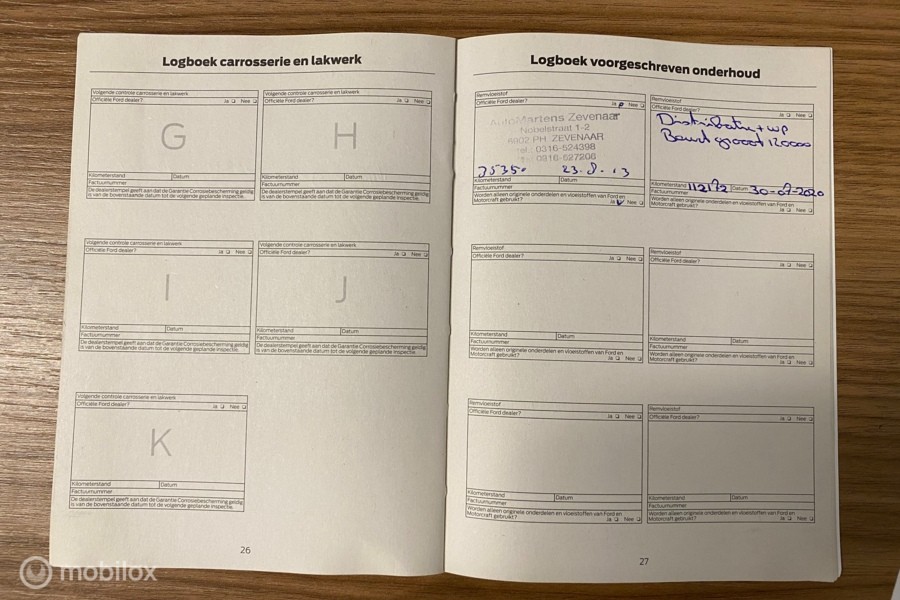 Logboek carrosserie en lakwerk
Volgende controle carrosserie en lakwerk
Officiële Ford dealer? Ja Nee
G
Kilometerstand Datum
Factuurnummer
De dealerstempel geeft aan dat de Garantie Corrosiebescherming geldig
is van de bovenstaande datum tot de volgende geplande inspectie.
Volgende controle carrosserie en lakwerk
Officiële Ford dealer? Ja Nee
H
Kilometerstand Datum
Factuurnummer
De dealerstempel geeft aan dat de Garantie Corrosiebescherming geldig
is van de bovenstaande datum tot de volgende geplande inspectie.
Volgende controle carrosserie en lakwerk
Officiële Ford dealer? Ja Nee
I
Kilometerstand Datum
Factuurnummer
De dealerstempel geeft aan dat de Garantie Corrosiebescherming geldig
is van de bovenstaande datum tot de volgende geplande inspectie.
Volgende controle carrosserie en lakwerk
Officiële Ford dealer? Ja Nee
J
Kilometerstand Datum
Factuurnummer
De dealerstempel geeft aan dat de Garantie Corrosiebescherming geldig
is van de bovenstaande datum tot de volgende geplande inspectie.
Volgende controle carrosserie en lakwerk
Officiële Ford dealer? Ja Nee
K
Kilometerstand Datum
Factuurnummer
De dealerstempel geeft aan dat de Garantie Corrosiebescherming geldig
is van de bovenstaande datum tot de volgende geplande inspectie.
26
Logboek voorgeschreven onderhoud
Remvloeistof
Officiële Ford dealer? Ja Nee
AutoMartens Zevenaar
Nobelstraat 1-2
6902 PH ZEVENAAR
tel. 0316-524398
0316-527206
35350 23.8.13
Kilometerstand Datum
Factuurnummer
Worden alleen originele onderdelen en vloeistoffen van Ford en
Motorcraft gebruikt? Ja Nee
Remvloeistof
Officiële Ford dealer? Ja Nee
Distributie + wp
Beurt groot 120000
Kilometerstand 112172 Datum 30-07-2020
Factuurnummer
Worden alleen originele onderdelen en vloeistoffen van Ford en
Motorcraft gebruikt? Ja Nee
Remvloeistof
Officiële Ford dealer? Ja Nee
Kilometerstand Datum
Factuurnummer
Worden alleen originele onderdelen en vloeistoffen van Ford en
Motorcraft gebruikt? Ja Nee
Remvloeistof
Officiële Ford dealer? Ja Nee
Kilometerstand Datum
Factuurnummer
Worden alleen originele onderdelen en vloeistoffen van Ford en
Motorcraft gebruikt? Ja Nee
Remvloeistof
Officiële Ford dealer? Ja Nee
Kilometerstand Datum
Factuurnummer
Worden alleen originele onderdelen en vloeistoffen van Ford en
Motorcraft gebruikt? Ja Nee
Remvloeistof
Officiële Ford dealer? Ja Nee
Kilometerstand Datum
Factuurnummer
Worden alleen originele onderdelen en vloeistoffen van Ford en
Motorcraft gebruikt? Ja Nee
27
mobilox